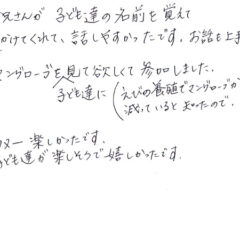 兄さんが 子ども達の名前を覚えて
かけてくれて、話しやすかったです。お話も上手
マングローブを見て欲しくて 参加しました。
子ども達に (えびの養殖でマングローブが
減っていると知ったので。
楽しかったです。
子ども達が楽しそうで嬉しかったです。